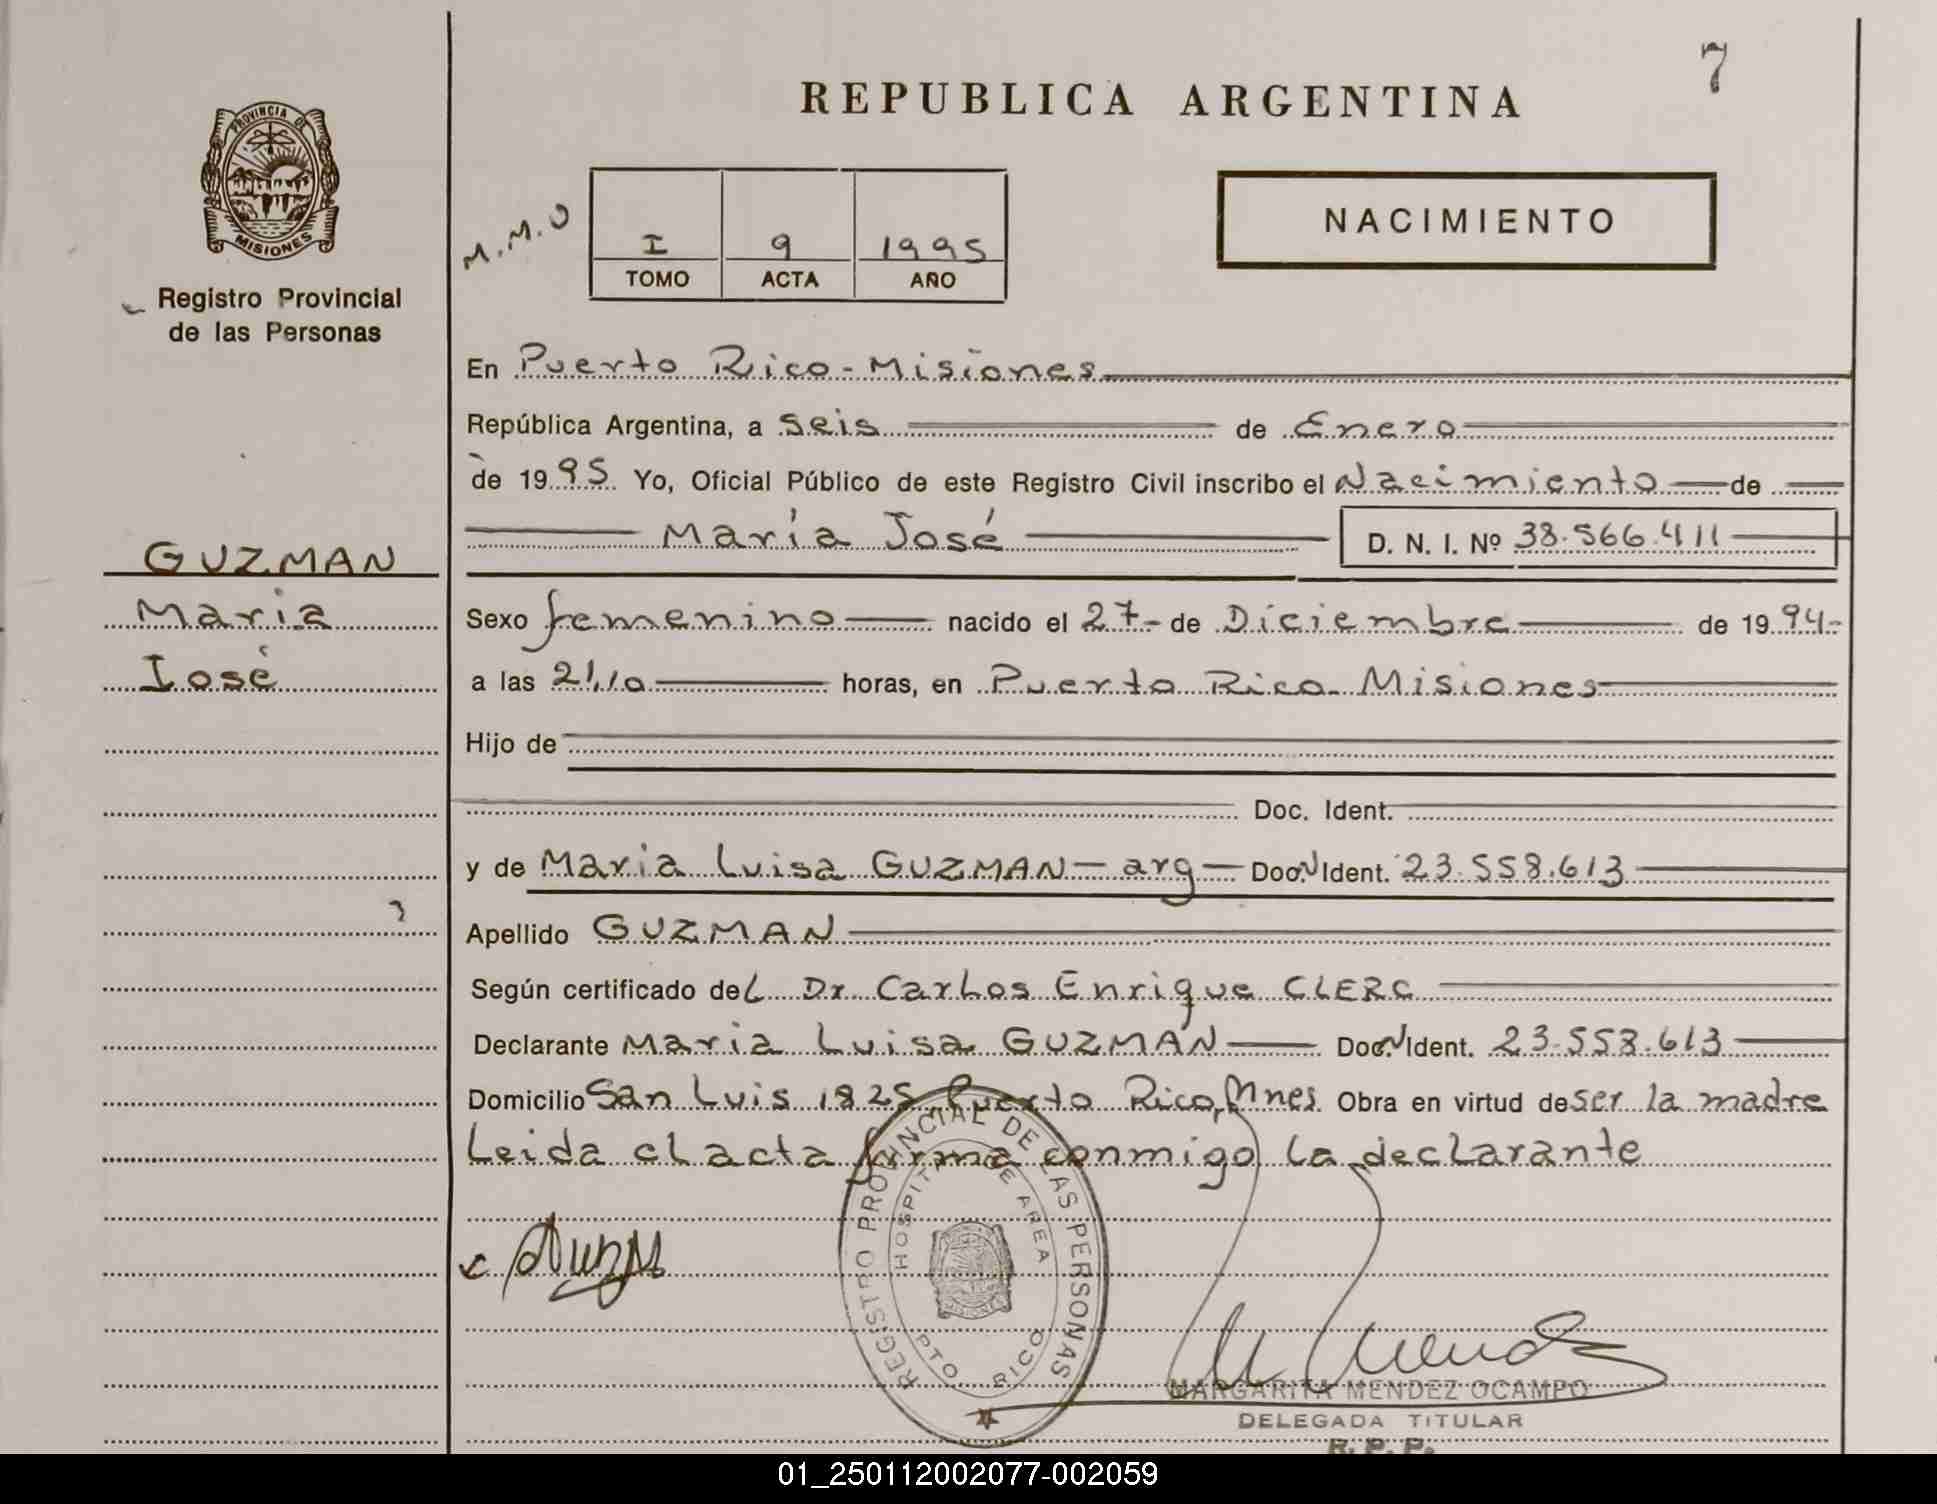 7
REPUBLICA ARGENTINA
PROVINCIA DE
MISIONES
Registro Provincial
de las Personas
M.M.O
I 9 1995
TOMO ACTA AÑO
NACIMIENTO
En Puerto Rico - Misiones
República Argentina, a seis de Enero
de 1995 Yo, Oficial Público de este Registro Civil inscribo el Nacimiento de
María José D. N. I. Nº 38.566.411
GUZMAN
Maria
José
Sexo femenino nacido el 27- de Diciembre de 1994-
a las 21,10 horas, en Puerto Rico Misiones
Hijo de
Doc. Ident.
y de Maria Luisa GUZMAN - arg - Doc. Ident. 23.558.613
Apellido GUZMAN
Según certificado del Dr. Carlos Enrique CLERC
Declarante Maria Luisa GUZMAN Doc. Ident. 23.558.613
Domicilio San Luis 1825 Puerto Rico, Mnes Obra en virtud de ser la madre
Leida el acta firma conmigo la declarante
REGISTRO PROVINCIAL DE LAS PERSONAS
HOSPITAL DE AREA
MISIONES
PTO. RICO
MARGARITA MENDEZ OCAMPO
DELEGADA TITULAR
R. P. P.
01_250112002077-002059